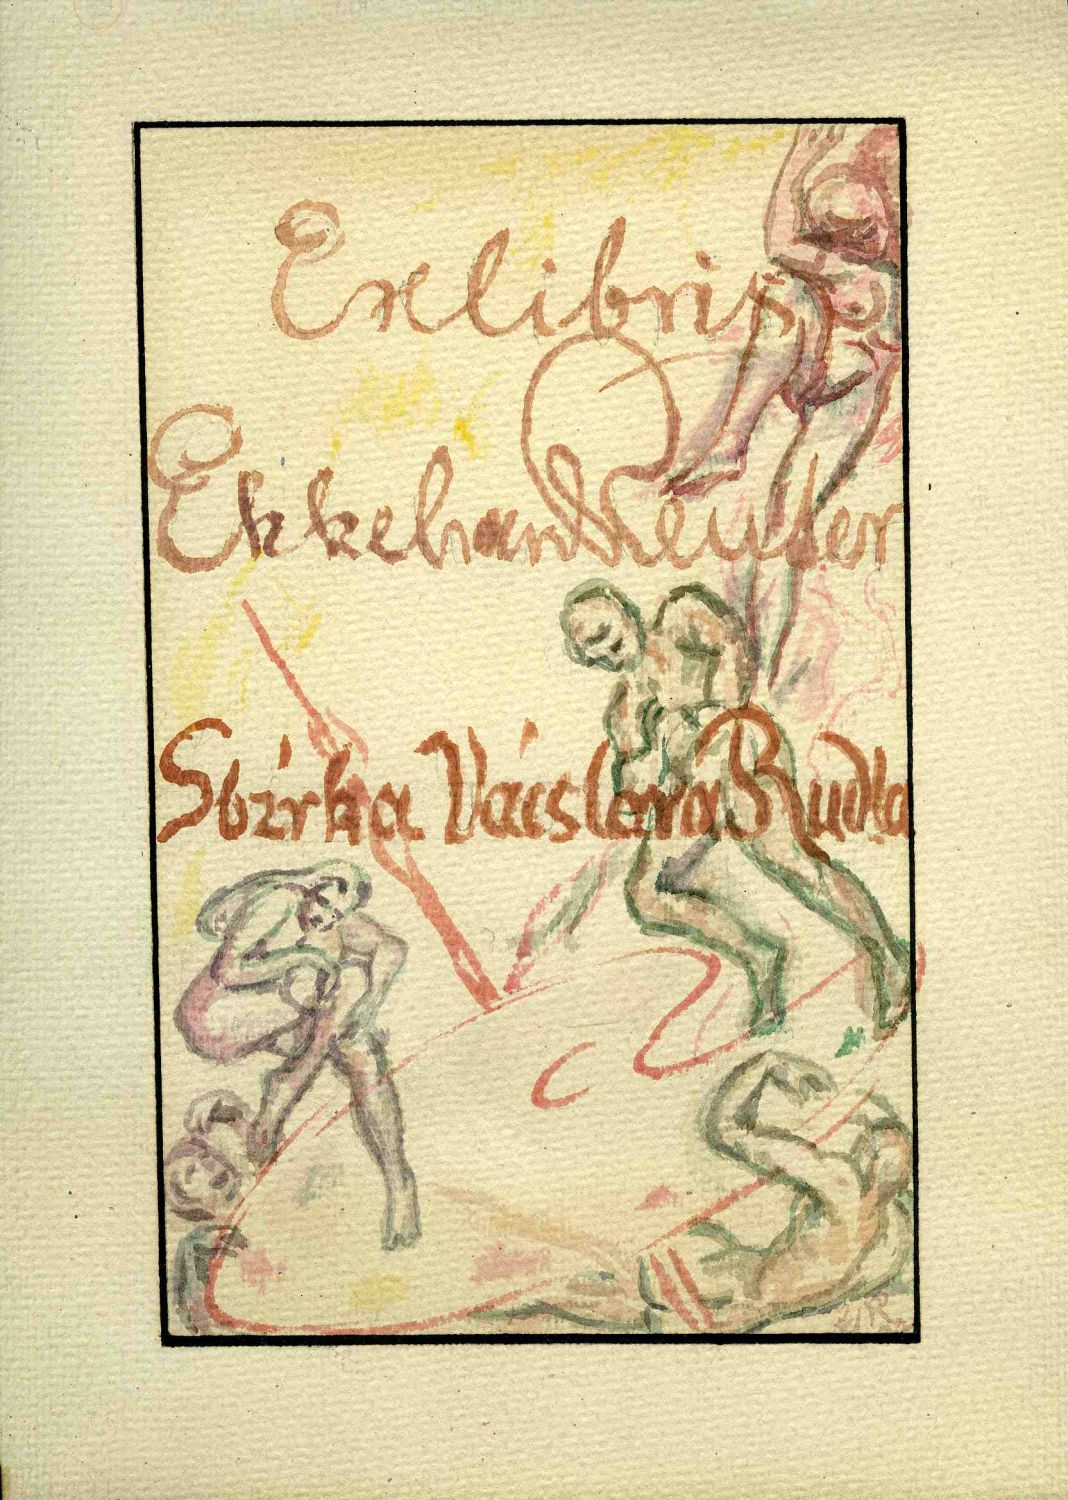 Exlibris
Ekkehard Reuter
Sbírka Václava Rudla